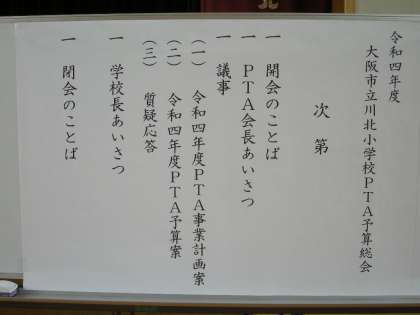 令和四年度
大阪市立川北小学校PTA予算総会
次第
一 開会のことば
一 PTA会長あいさつ
一 議事
(一) 令和四年度PTA事業計画案
(二) 令和四年度PTA予算案
(三) 質疑応答
一 学校長あいさつ
一 閉会のことば